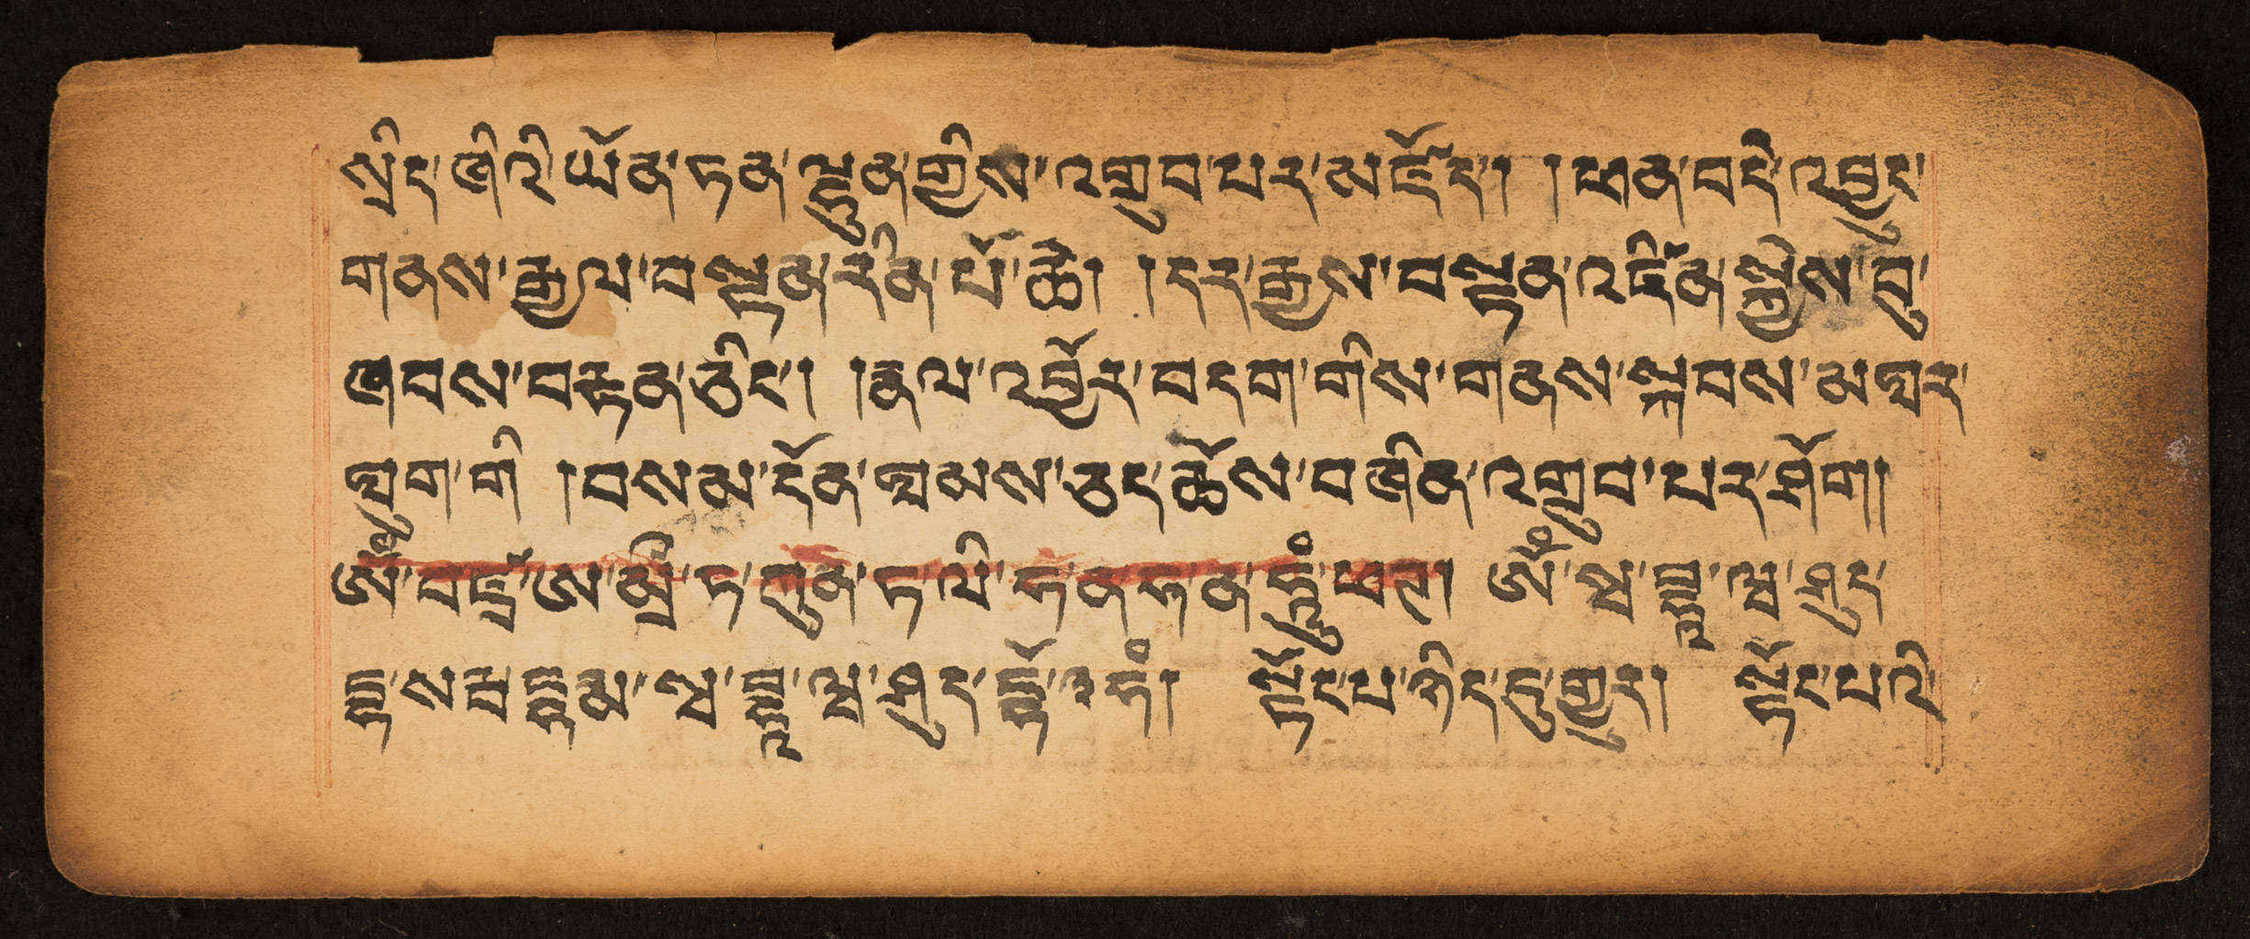 སྲིད་ཞིའི་ཡོན་ཏན་ལྷུན་གྱིས་འགྲུབ་པར་མཛོད། །ཕན་བདེ་འབྱུང་
གནས་རྒྱལ་བསྟན་རིན་པོ་ཆེ། །དར་རྒྱས་བསྟན་འཛིན་སྐྱེས་བུ་
ཞབས་བརྟན་ཅིང་། །རྣལ་འབྱོར་བདག་གིས་གནས་སྐབས་མཐར་
ཐུག་གི །བསམ་དོན་ཐམས་ཅད་ཆོས་བཞིན་འགྲུབ་པར་ཤོག།
ཨོཾ་བཛྲ་ཨ་མྲྀ་ཏ་ཀུན་ཏ་ལི་ཧ་ན་ཧ་ན་ཧཱུྃ་ཕཊ། ཨོཾ་སྭ་བྷཱ་ཝ་ཤུད་
དྷ་སརྦ་དྷརྨ་སྭ་བྷཱ་ཝ་ཤུད་དྷོ་྅ཧཾ། སྟོང་པ་ཉིད་དུ་གྱུར། སྟོང་པའི་